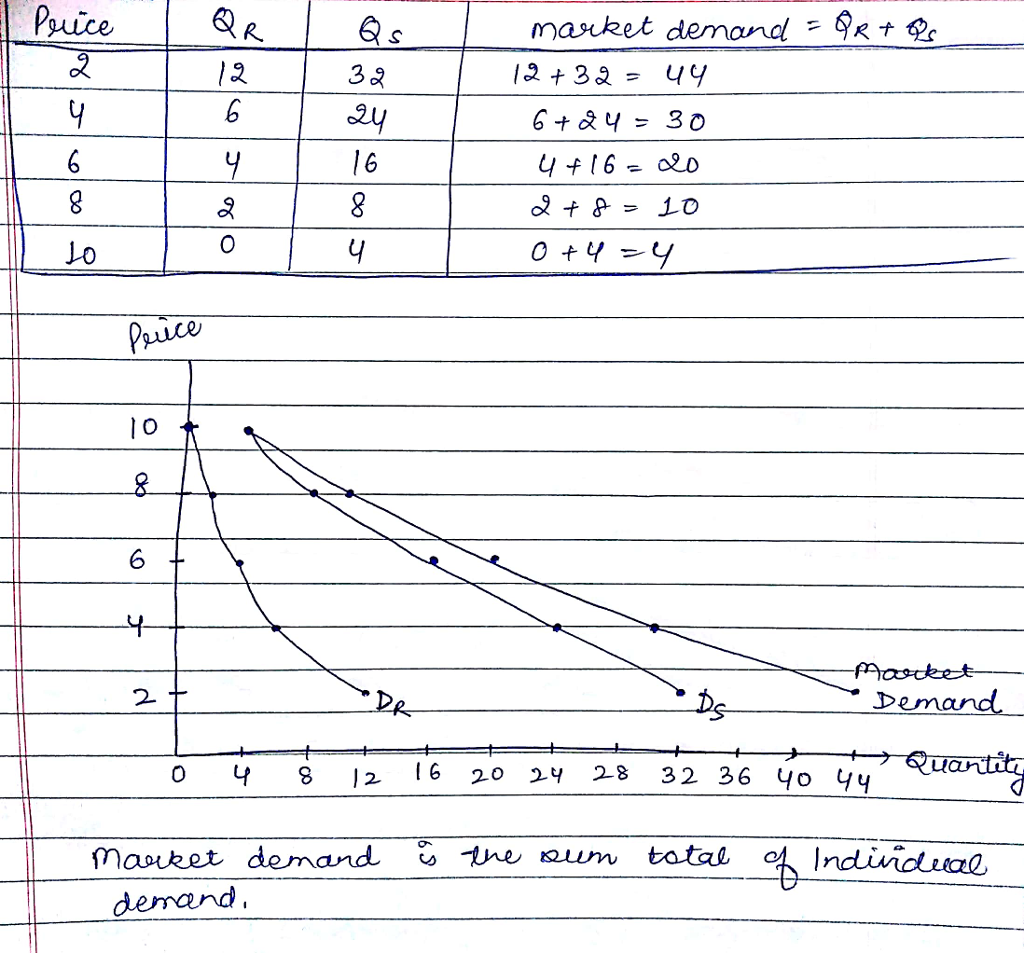 Price QR QS market demand = QR + QS
2 12 32 12 + 32 = 44
4 6 24 6 + 24 = 30
6 4 16 4 + 16 = 20
8 2 8 2 + 8 = 10
10 0 4 0 + 4 = 4
Price
10
8
6
4
Market
2 DR DS Demand
0 4 8 12 16 20 24 28 32 36 40 44 Quantity
Market demand is the sum total of Individual
demand.